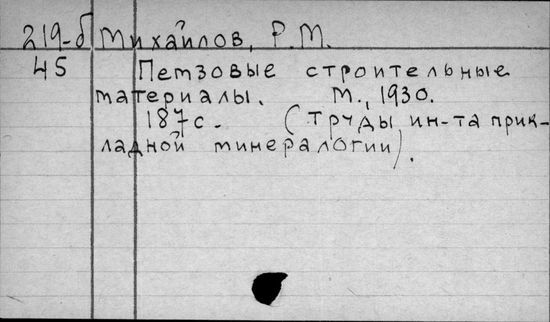 219-б Михайлов, Р.М.
45 Пемзовые строительные
материалы. М., 1930.
187с. (Труды ин-та прик-
ладной минералогии).